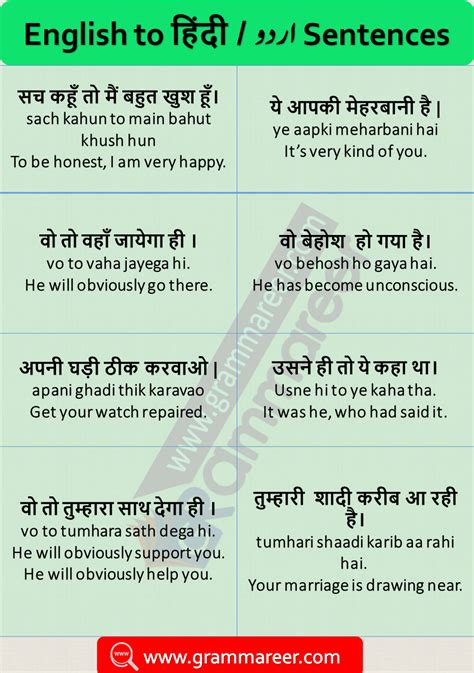 English to हिंदी / اردو Sentences
सच कहूँ तो मैं बहुत खुश हूँ।
sach kahun to main bahut
khush hun
To be honest, I am very happy.
ये आपकी मेहरबानी है |
ye aapki meharbani hai
It’s very kind of you.
वो तो वहाँ जायेगा ही ।
vo to vaha jayega hi.
He will obviously go there.
वो बेहोश हो गया है।
vo behosh ho gaya hai.
He has become unconscious.
अपनी घड़ी ठीक करवाओ |
apani ghadi thik karavao
Get your watch repaired.
उसने ही तो ये कहा था।
Usne hi to ye kaha tha.
It was he, who had said it.
वो तो तुम्हारा साथ देगा ही ।
vo to tumhara sath dega hi.
He will obviously support you.
He will obviously help you.
तुम्हारी शादी करीब आ रही
है।
tumhari shaadi karib aa rahi
hai.
Your marriage is drawing near.
www.grammareer.com
Grammareer
www
www.grammareer.com